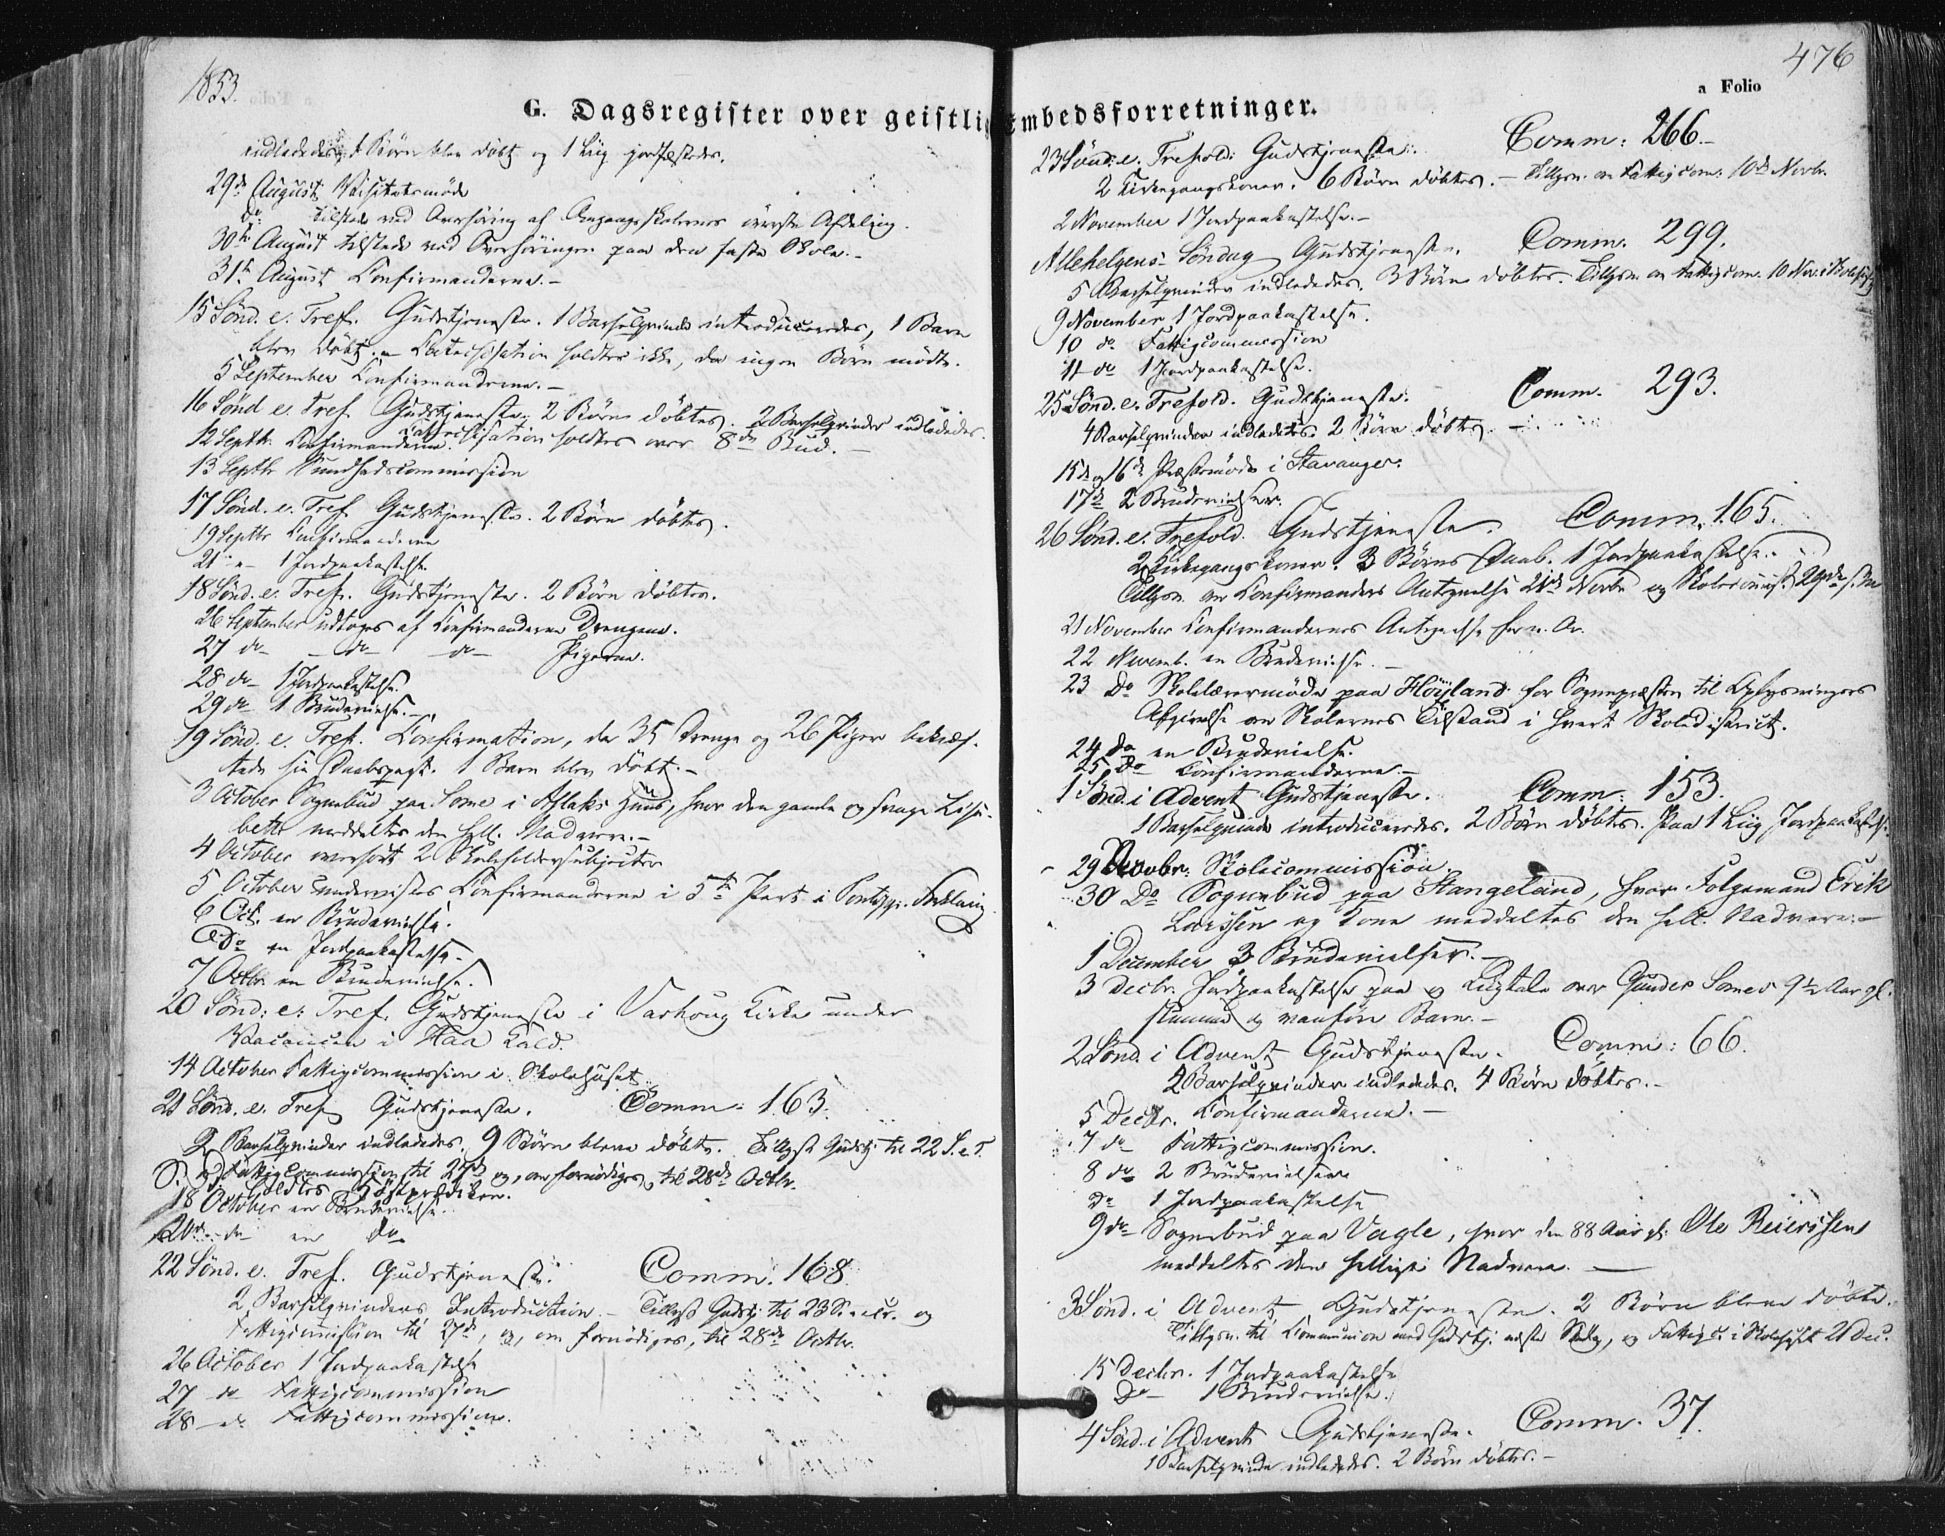 1853.
G. Dagsregister over geistli
indledede, 1 Børn blev døbt og 1 Liig jordfæstedes.
29de August Visitatsmøde
do tilstede ved Overhøring af Omgangsskolernes øverste Afdeling.
30te August tilstede ved Overhøringen paa den faste Skole.-
31te August Confirmanderne.-
15 Sønd. e. Tref. Gudstjeneste. 1 Barselqvinde introduceredes, 1 Barn
blev døbt. Catechisation holdtes ikke, da ingen Børn mødte.
5 September Confirmanderne.-
16 Sønd e. Tref. Gudstjeneste. 2 Børn døbtes. 2 Barselqvinder indlededes.
Catechisation holdtes over 8de Bud.-
12 Septbr. Confirmanderne.
13 Septbr Sundhedscommission
17 Sønd. e. Tref. Gudstjeneste. 2 Børn døbtes.
19 Septbr Confirmanderne
21 - 1 Jordpaakastelse.
18 Sønd. e. Tref. Gudstjeneste. 2 Børn døbtes.
26 September udtoges af Confirmanderne Drengene.
27 do - do - do - Pigerne.
28 do - 1 Jordpaakastelse.
29 do 1 Brudevielse.-
19 Sønd. e. Tref. Confirmation, da 35 Drenge og 26 Piger bekræf-
tede sin Daabspagt. 1 Barn blev døbt.-
3 October Sognebud paa Some i Aslaks Huus, hvor den gamle og svage Lisa-
beth meddeltes den hell. Nadvere.-
4 October overhørt 2 Skoleholdersubjecter
5 October underviistes Confirmanderne i 5te Part i Pontopp. Forklaring
6 Oct. en Brudevielse.
Do en Jordpaakastelse.
7 Octbr. en Brudevielse.
20 Sønd: e: Tref. Gudstjeneste i Varhoug Kirke under
Vacancen i Haa Kald.
14 October Fattigcommission i Skolehuset.
21 Sønd. e. Tref. Gudstjeneste. Comm: 163.
2 Barselqvinder indlededes. 9 Børn bleve døbte. Tillyst Gudstj. til 22 S. e. T.
Fattigcommission til 27de og, om fornødiges, til 28de Octbr.
holdtes Høstprædiken.
18 October en Brudevielse.
20de do en do
22 Sønd. e. Tref. Gudstjeneste. Comm. 168
2 Barselqvinders Introduction.- Tillyst Gudstj. til 23 S. e. Tr. og
Fattigcommission til 27de, og, om fornødiges, til 28de Octbr.
26 October 1 Jordpaakastelse
27 - do Fattigcommission
28 - do Fattigcommission.
476
a Folio
Embedsforretninger.
23 Sønd: e. Trefold: Gudstjeneste. Comm: 266.-
2 Kirkegangskoner. 6 Børn døbtes.- Tillysn. om Fattigcom. 10de Novbr.
2 November 1 Jordpaakastelse.-
Allehelgens Søndag Gudstjeneste. Comm. 299.
5 Barselqvinder indlededes. 3 Børn døbtes. Tillysn. om Fattigcom. 10 Nov. i
9 November 1 Jordpaakastelse.
10 do Fattigcommission
11 do 1 Jordpaakastelse.
25 Sønd. e. Trefold. Gudstjeneste. Comm. 293.
4 Barselqvinder indlededes. 2 Børn døbtes.-
15de og 16de Præstemøde i Stavanger.
17de 2 Brudevielser.
26 Sønd. e. Trefold. Gudstjeneste. Comm. 165.
2 Kirkegangskoner. 3 Børns Daab. 1 Jordpaakastelse.-
Tillysn. om Confirmanders Antegnelse 21de Novbr og Skolecommiss. 29de s. M.
21 November Confirmandernes Antegnelse for n. Ar.
22 Novemb. en Brudevielse.-
23 Do Skolelærermøde paa Høyland for Sognepræsten til Oplysningers
Afgivelse om Skolernes Tilstand i hvert Skoledistrict.
24 Do en Brudevielse.
25 Do Confirmanderne.-
1 Sønd. i Advent Gudstjeneste. Comm: 153.
1 Barselqvinde introduceredes. 2 Børn døbtes. Paa 1 Liig Jordpaakastelse.
29 Novbr. Skolecommission
30 Do Sognebud paa Stangeland, hvor Folgemand Erik
Larssen og Kone meddeltes den hell. Nadvere.-
1 December 3 Brudevielser.-
3 Decbr. Jordpaakastelse paa og Liigtale over Gunder Somes 9½ Aar gl.
stumme og vanføre Barn.-
2 Sønd. i Advent Gudstjeneste. Comm: 66.
2 Barselqvinder indlededes. 4 Børn døbtes.-
5 Decbr. Confirmanderne.-
7 do Fattigcommission.
8 do 2 Brudevielser
Do 1 Jordpaakastelse
9 do Sognebud paa Vagle, hvor den 88 Aar gl. Ole Reiersen
meddeltes den hellige Nadvere.-
3 Sønd. i Advent Gudstjeneste. 2 Børn bleve døbte.
Tillysn. til Communion med Gudstj. næste Søndag, og Fattigc. i Skolehuset 21 Dec.
15 Decbr. 1 Jordpaakastelse
Do - 1 Brudevielse.
4 Sønd. i Advent Gudstjeneste. Comm. 37.
1 Barselqvinde indlededes. 2 Børn døbtes.-